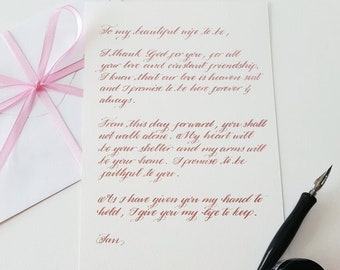 To my beautiful wife to be,
I thank God for you, for all
your love and constant friendship.
I know that our love is heaven sent
and I promise to be here forever &
always.
From this day forward, you shall
not walk alone. My heart will
be your shelter and my arms will
be your home. I promise to be
faithful to you.
As I have given you my hand to
hold, I give you my life to keep.
Ian